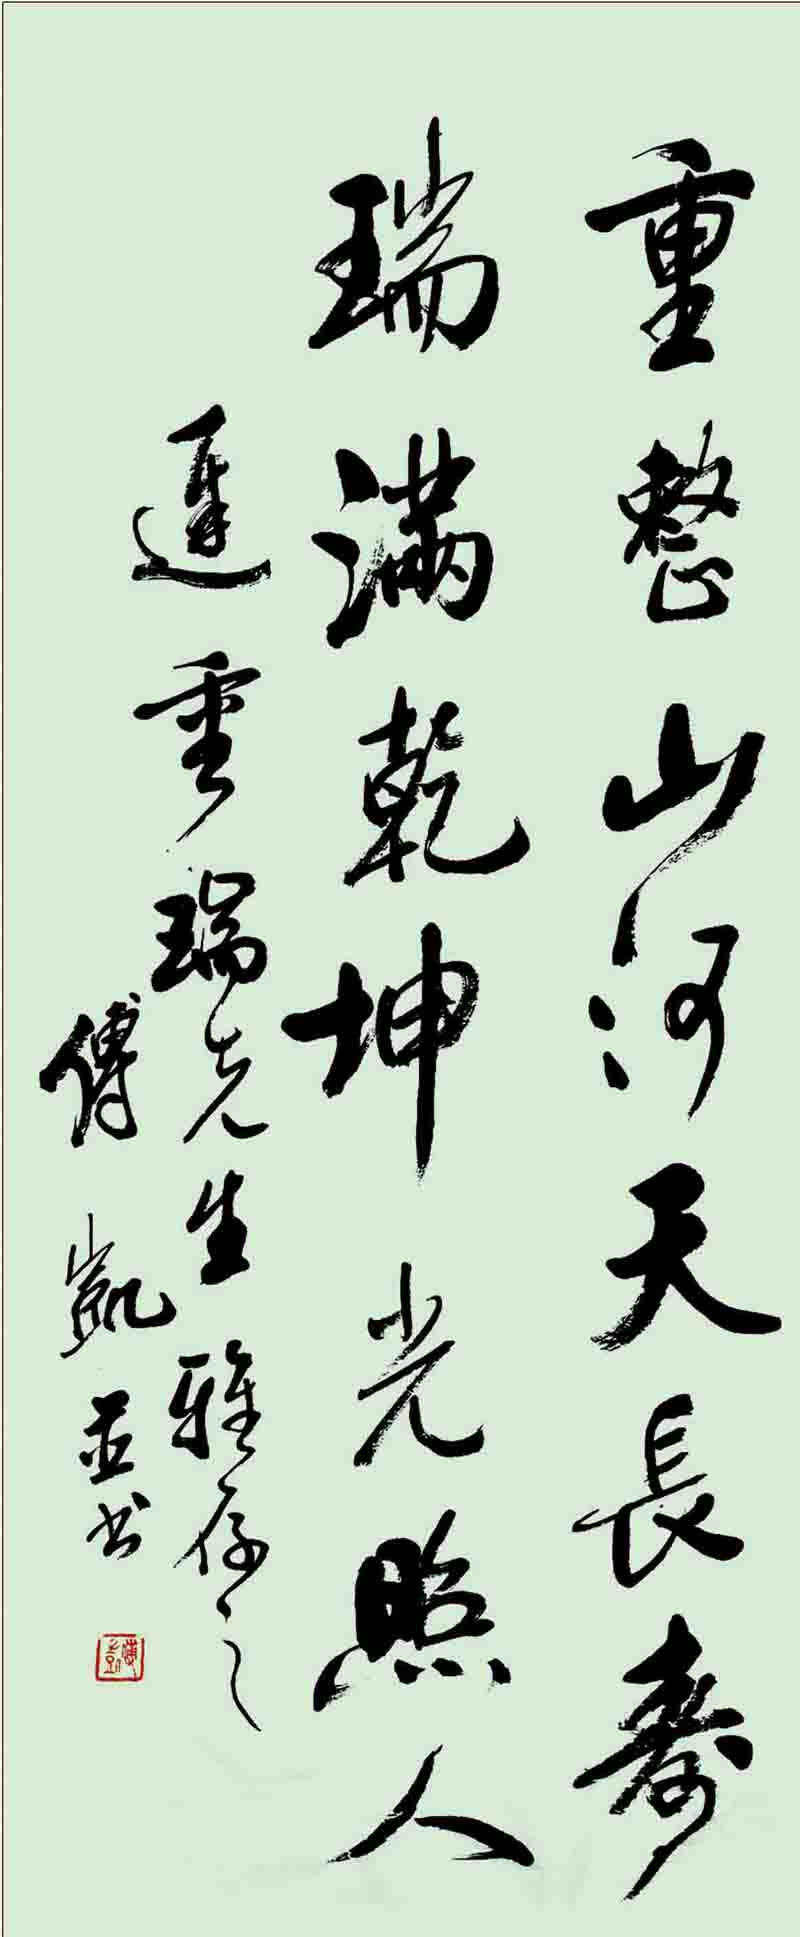 重整山河天長壽
瑞滿乾坤光照人
遲重瑞先生雅存之
傅凱並书